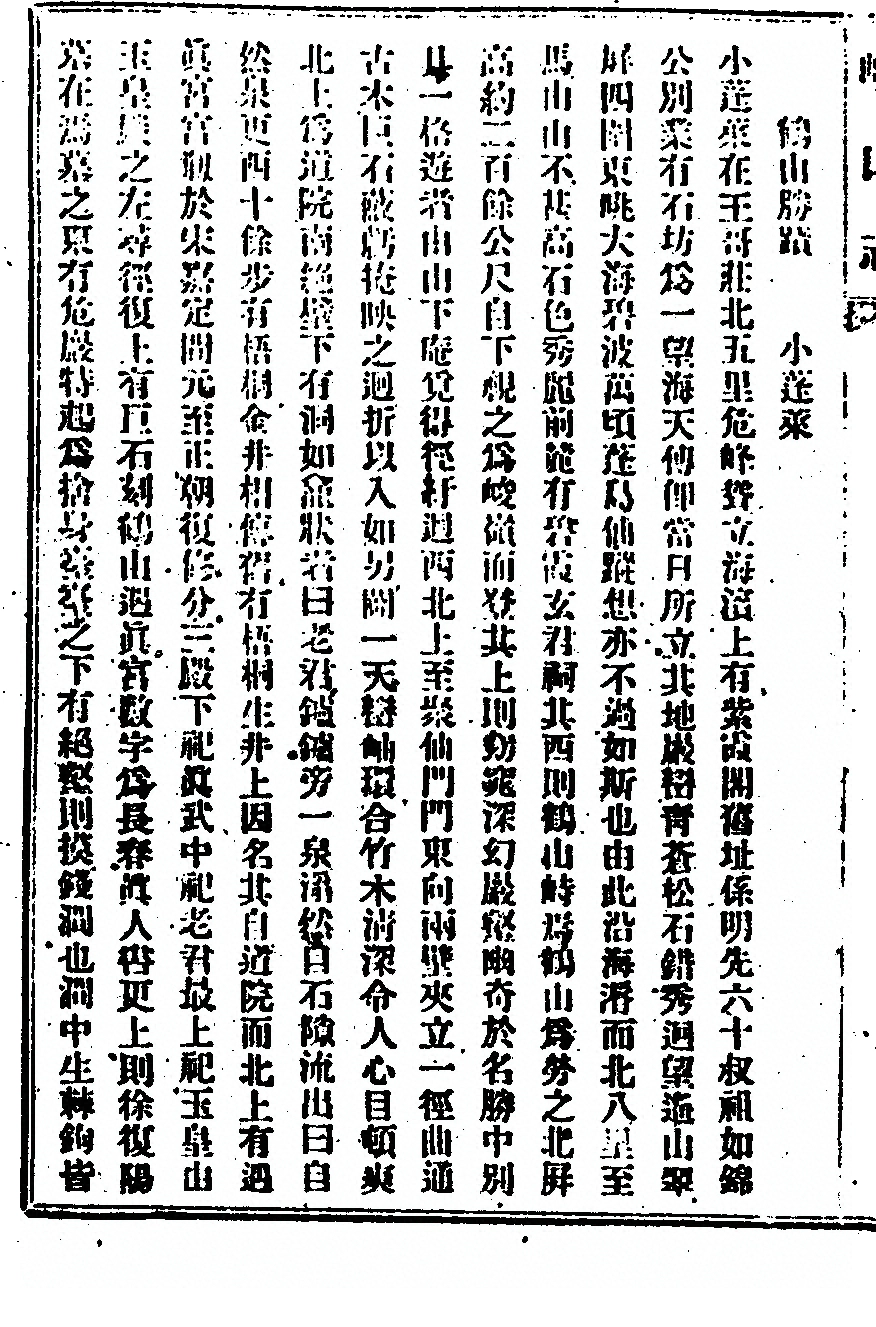 鶴山勝蹟　小蓬萊
小蓬萊在王哥莊北五里危峰聳立海濱上有紫霞閣舊址係明先六十叔祖如錦
公別業有石坊爲一望海天傅仰當日所立北地巖巒靑蒼松石錯秀迴望遠山翠
屏四圍東眺大海碧波萬頃蓬島仙蹤想亦不過如斯也由此沿海滸而北八里至
馬山山不甚高石色秀麗前麓有碧霞玄君祠其西則鶴山峙焉鶴山爲勞之北屛
高約二百餘公尺自下視之爲峻嶺而登其上則窈窕深幻巖壑幽奇於名勝中別
具一格遊者由山下庵覓得徑紆迴西北上至聚仙門門東向兩壁夾立一徑曲通
古木巨石蔽虧掩映之迴折以入如另闢一天巒岫環合竹木淸深令人心目頓爽
北上爲道院南絶壁下有洞如龕狀者曰老君爐爐旁一泉滃然自石隙流出曰自
然泉更西四十餘步有梧桐金井相傳舊有梧桐生井上因名其自道院而北上有遇
眞宮宮剏於宋嘉定間元至正朝復修分三殿下祀眞武中祀老君最上祀玉皇由
玉皇殿之左尋徑復上有巨石刻鶴山遇眞宮數字爲長春眞人書更上則徐復陽
墓在焉墓之東有危巖特起爲捨身臺臺之下有絕壑則摸錢澗也澗中生棘鉤皆